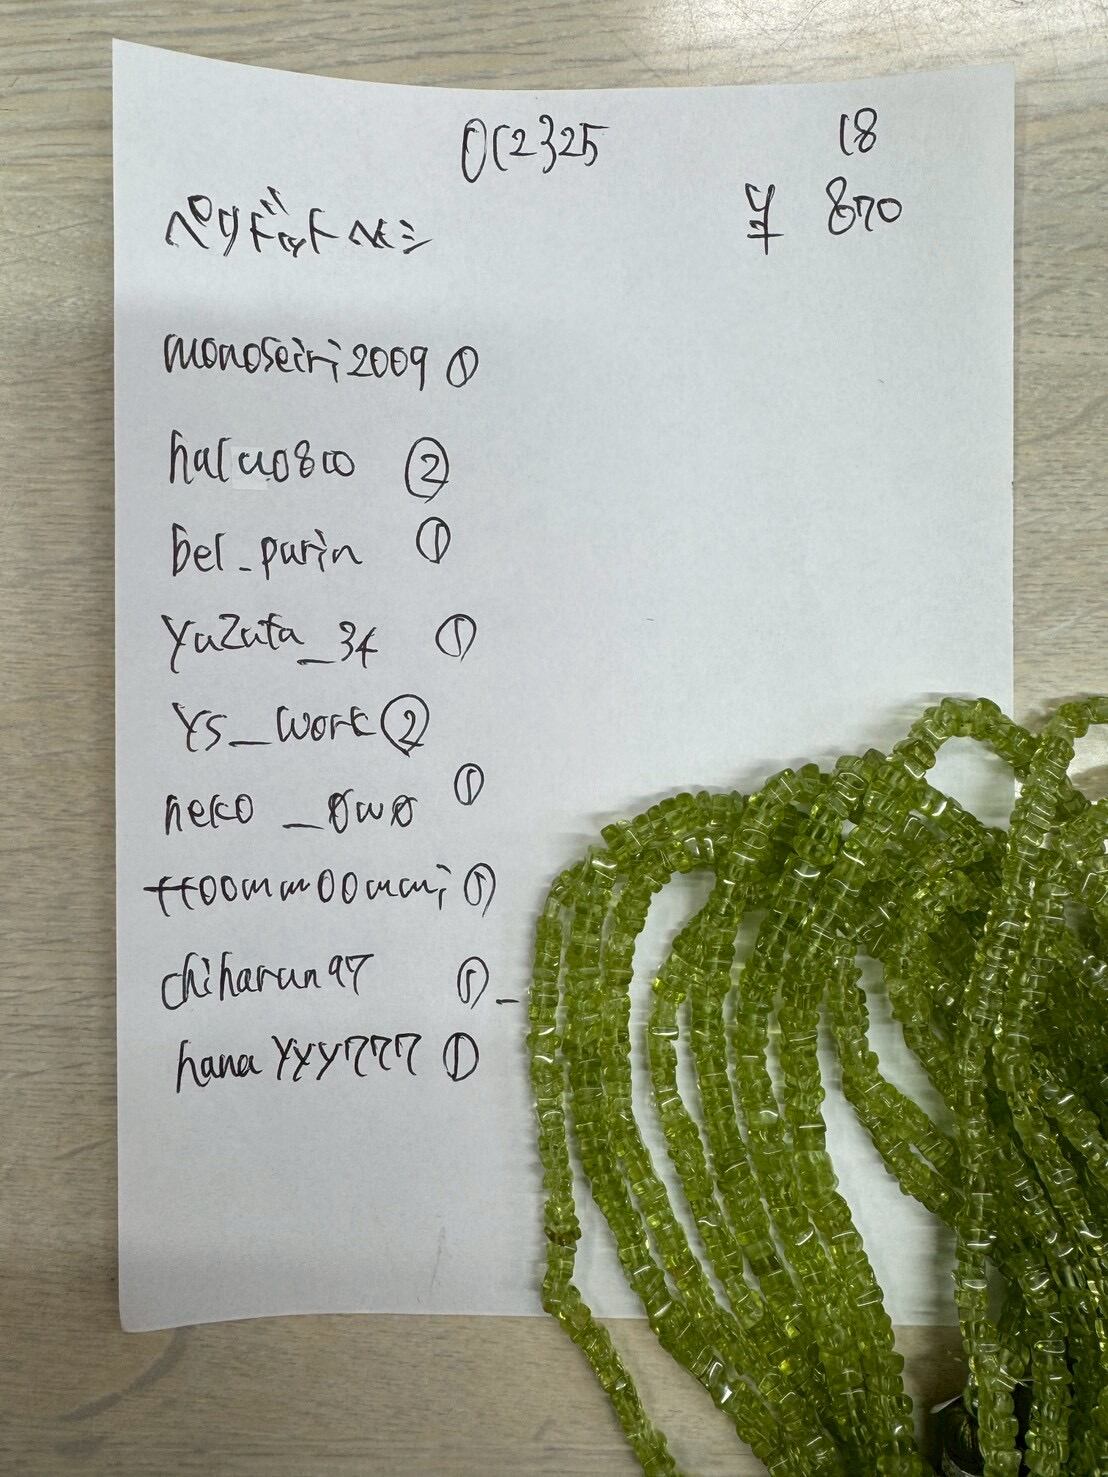 0(2325 18
ペリドット ¥ 870
monoseiri2009 ①
haruo800 ②
bel_purin ①
yuzuta_34 ①
ys_work ②
neko _owo ①
tt00mm00mmi ①
chiharun97 ①
hana yyy777 ①